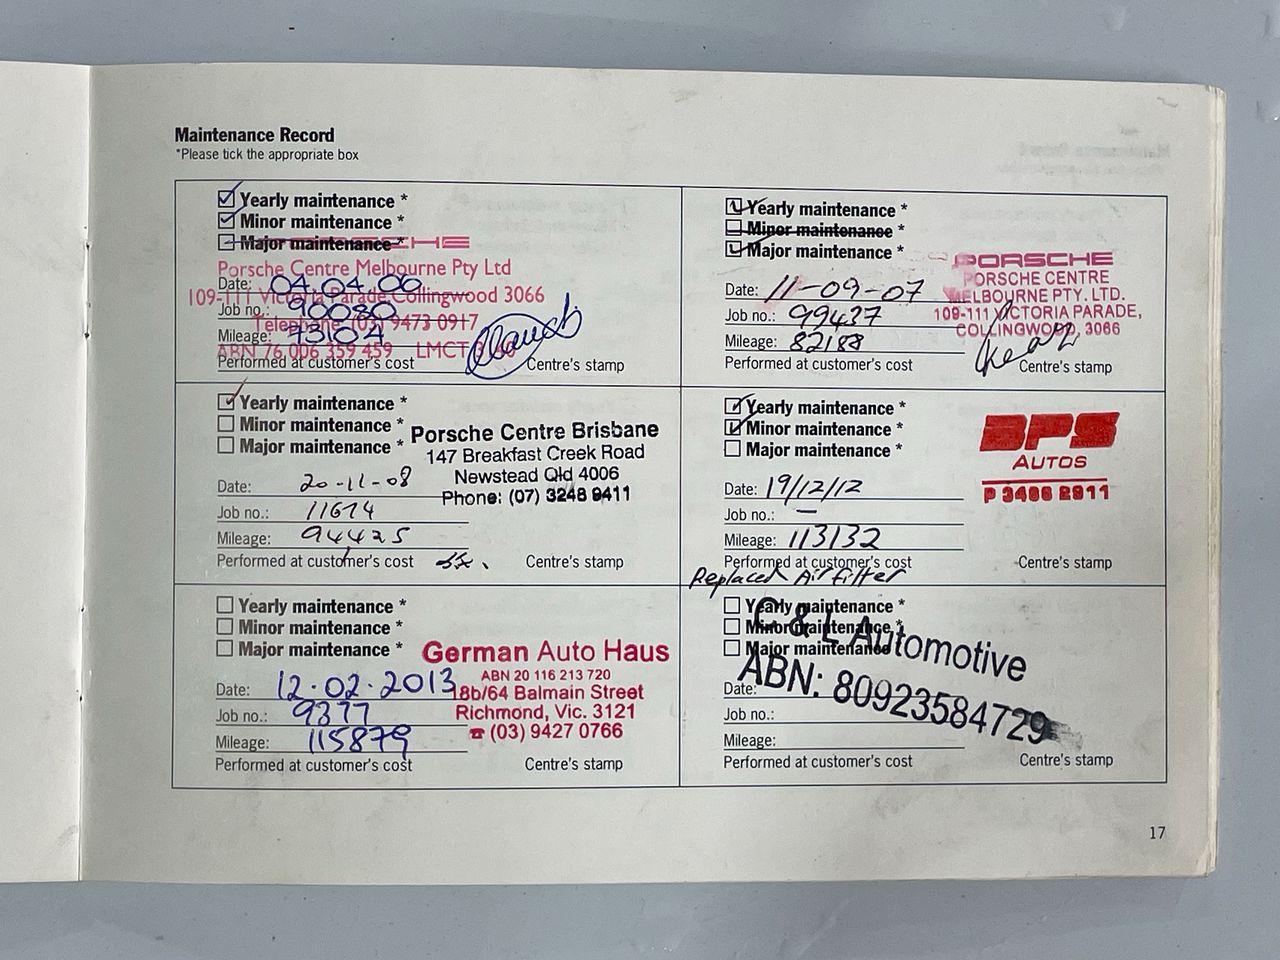 Maintenance Record
*Please tick the appropriate box
Yearly maintenance *
Minor maintenance *
Major maintenance *
Porsche Centre Melbourne Pty Ltd
Date: 04.04.06
109-111 Victoria Parade Collingwood 3066
Job no.: 90080
Telephone (03) 9473 0917
Mileage: 73104
ABN 76 006 359 459 LMCT
Performed at customer's cost
Centre's stamp
Yearly maintenance *
Minor maintenance *
Major maintenance *
PORSCHE
PORSCHE CENTRE
MELBOURNE PTY. LTD.
109-111 VICTORIA PARADE,
COLLINGWOOD, 3066
Date: 11-09-07
Job no.: 99437
Mileage: 82188
Performed at customer's cost
Centre's stamp
Yearly maintenance *
Minor maintenance *
Major maintenance *
Porsche Centre Brisbane
147 Breakfast Creek Road
Newstead Qld 4006
Phone: (07) 3248 9411
Date: 20-11-08
Job no.: 11674
Mileage: 94425
Performed at customer's cost
Centre's stamp
Yearly maintenance *
Minor maintenance *
Major maintenance *
BPS
AUTOS
Date: 19/12/12
Job no.: –
Mileage: 113132
Performed at customer's cost
Centre's stamp
Replaced Air filter
Yearly maintenance *
Minor maintenance *
Major maintenance *
German Auto Haus
ABN 20 116 213 720
18b/64 Balmain Street
Richmond, Vic. 3121
☎ (03) 9427 0766
Date: 12.02.2013
Job no.: 9377
Mileage: 115879
Performed at customer's cost
Centre's stamp
Yearly maintenance *
Minor maintenance *
Major maintenance
C & L Automotive
ABN: 80923584729
Date:
Job no.:
Mileage:
Performed at customer's cost
Centre's stamp
17